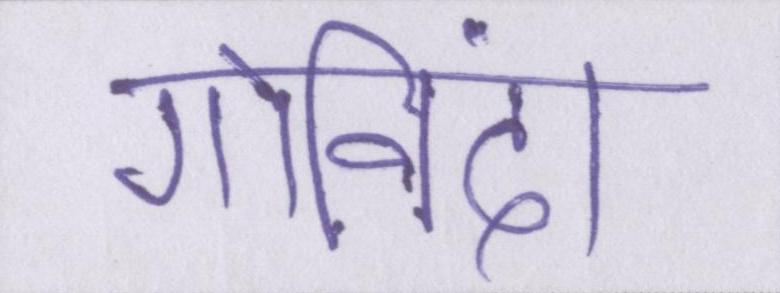 गोविंदा